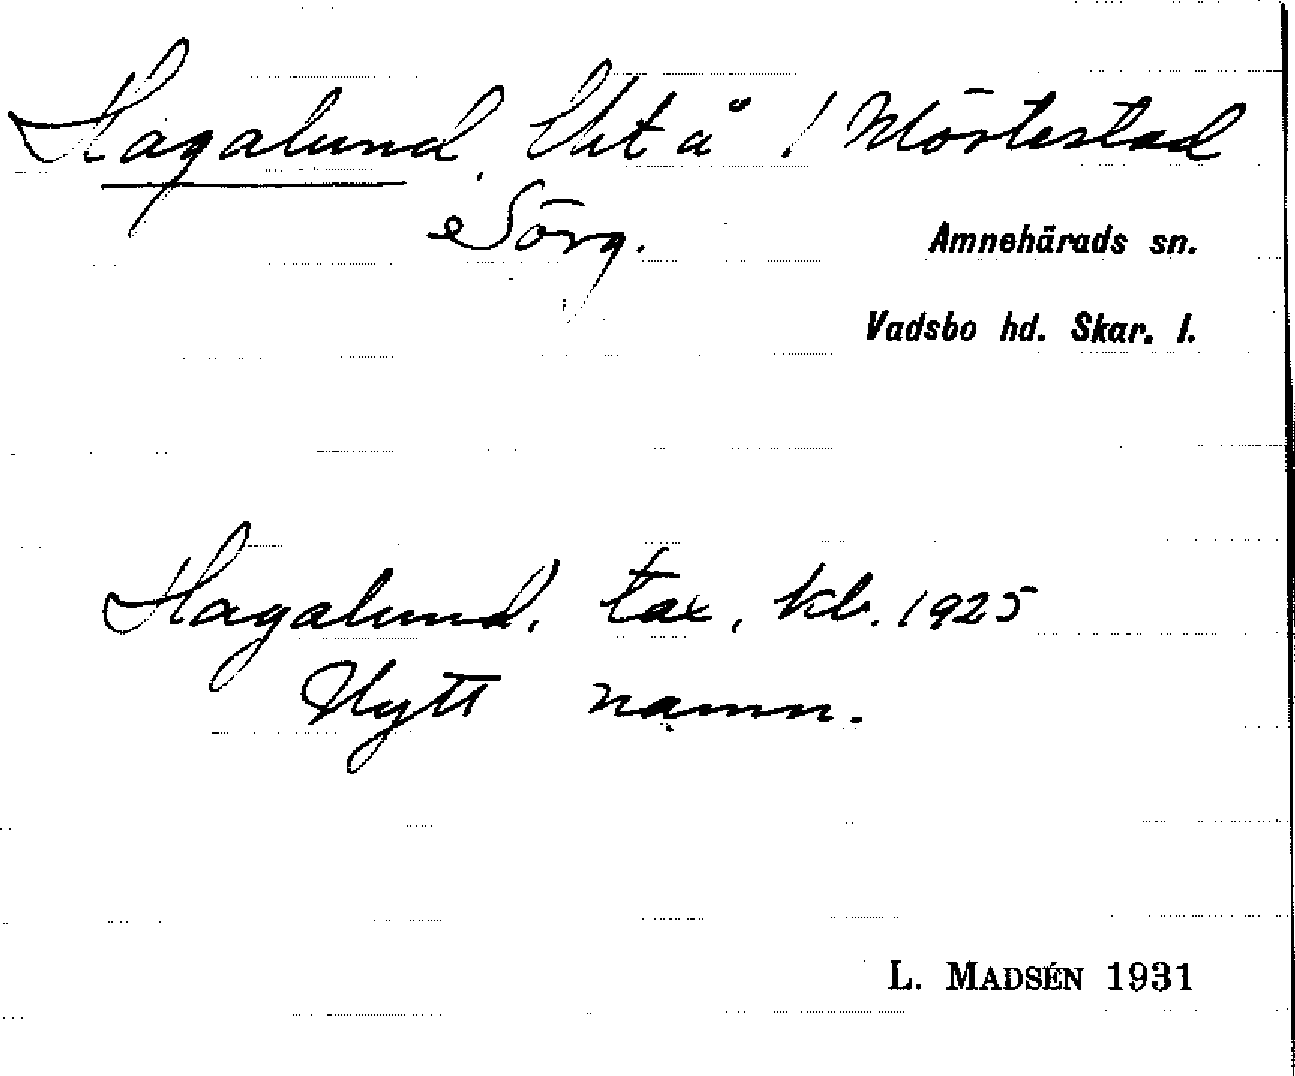 Hagalund. Lht å 1 Mörtestad
Sörg.
Amnehärads sn.
Vadsbo hd. Skar. l.
Hagalund, tax. kb. 1925
Nytt namn.
L. MADSÉN 1931